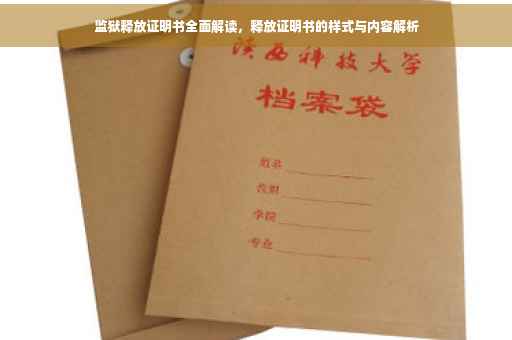 监狱释放证明书全面解读，释放证明书的样式与内容解析
陕西科技大学
档案袋
姓名
学院
专业